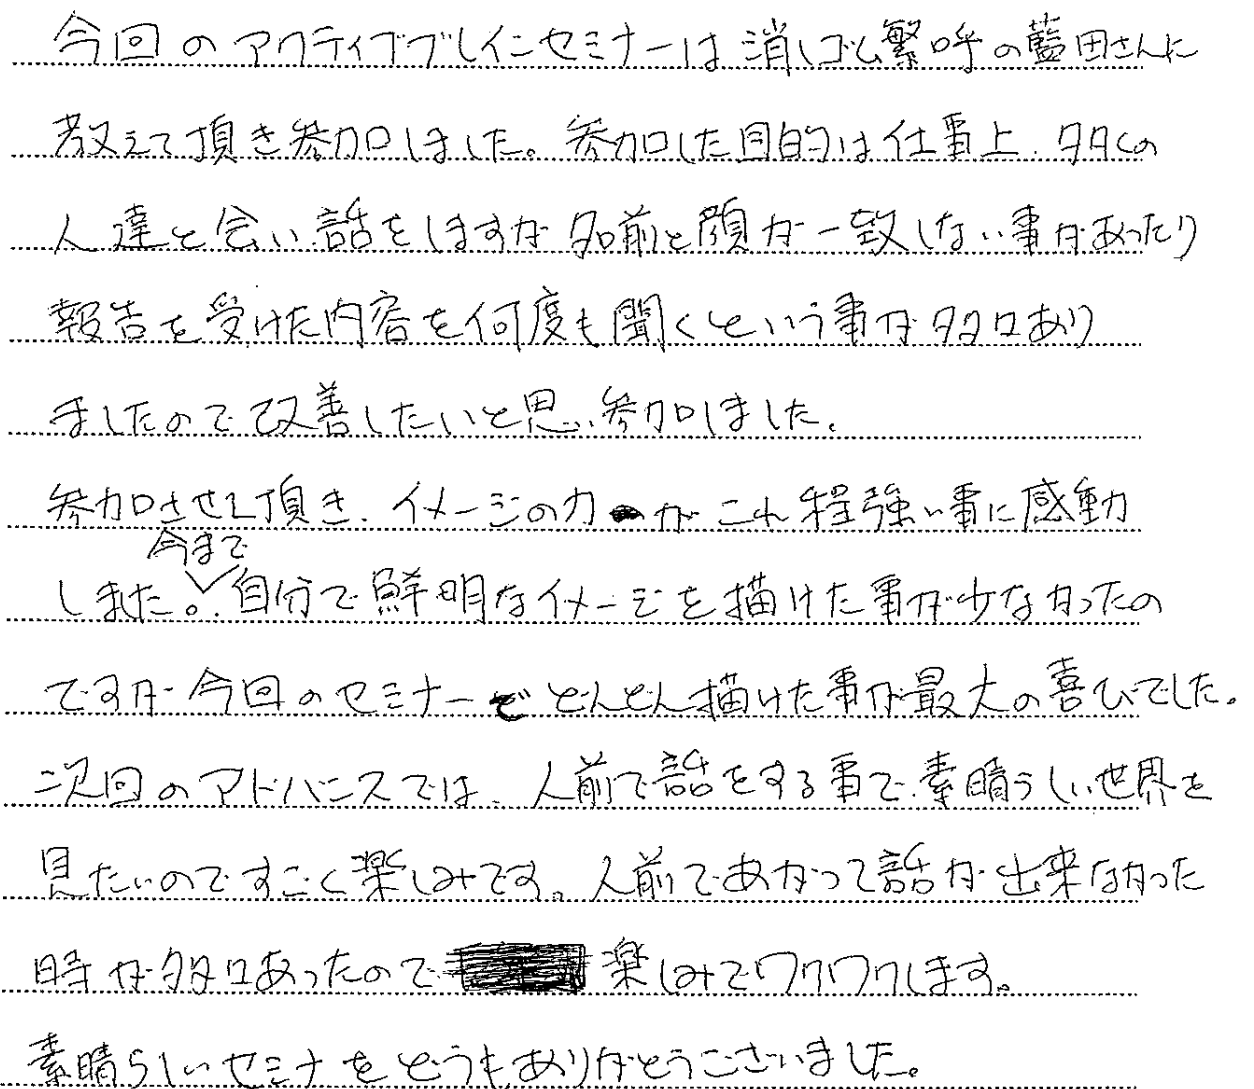 今回のアクティブブレインセミナーは消しゴム繁呼の藍田さんに
教えて頂き参加しました。参加した目的は仕事上、多くの
人達と会い話をしますが名前と顔が一致しない事があったり
報告を受けた内容を何度も聞くという事が多々あり
ましたので改善したいと思い参加しました。
参加させて頂き、イメージの力がこれ程強い事に感動
しました。今まで自分で鮮明なイメージを描けた事が少なかったの
ですが今回のセミナーでどんどん描けた事が最大の喜びでした。
次回のアドバンスでは、人前で話をする事で素晴らしい世界を
見たいのですごく楽しみです。人前であがって話が出来なかった
時が多々あったので楽しみでワクワクします。
素晴らしいセミナをどうもありがとうございました。